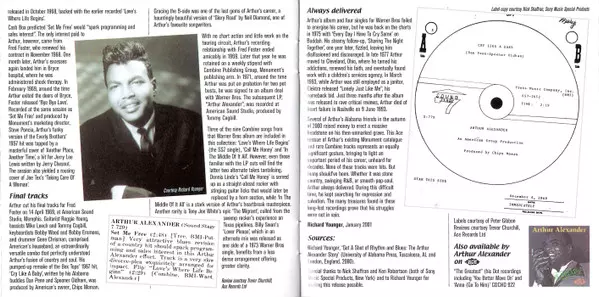 released in October 1968, backed with the earlier recorded 'Love's
Where Life Begins'.
Cash Box predicted 'Set Me Free' would "spark programming and
sales interest". The only interest paid to
Arthur, however, came from
Fred Foster, who renewed his
contract in November 1968. One
month later, Arthur's excesses
again landed him in Bryce
hospital, where he was
administered shock therapy. In
February 1969, around the time
Arthur exited the doors of Bryce,
Foster released 'Bye Bye Love'.
Recorded at the same session as
'Set Me Free' and produced by
Monument's marketing director,
Steve Poncio, Arthur's funky
version of the Everly Brothers'
1957 hit was topped by a
masterful cover of 'Another Place,
Another Time', a hit for Jerry Lee
Lewis written by Jerry Chesnut.
The session also yielded a rousing
cover of Joe Tex's 'Taking Care Of
A Woman'.
Final tracks
Arthur cut his final tracks for Fred
Foster on 14 April 1969, at American Sound
Studio, Memphis. Guitarist Reggie Young,
bassists Mike Leech and Tommy Cogbill,
keyboardists Bobby Wood and Bobby Emmons,
and drummer Gene Chrisman, comprised
American's houseband, an extraordinarily
versatile combo that perfectly understood
Arthur's fusion of country and soul. The
pumped-up remake of the Box Tops' 1967 hit,
'Cry Like A Baby', written by his Alabama
buddies Dan Penn and Spooner Oldham, was
produced by American's owner, Chips Moman.
Gracing the B-side was one of the last gems of Arthur's career, a
hauntingly beautiful version of 'Glory Road' by Neil Diamond, one of
Arthur's favourite songwriters.
With no chart action and little work on the
touring circuit, Arthur's recording
relationship with Fred Foster ended
amicably in 1969. Later that year he was
retained on a weekly stipend with
Combine Publishing Group, Monument's
publishing arm. In 1971, around the time
Arthur was put on probation for two pot
busts, he was signed to an album deal
with Warner Bros. The subsequent LP,
"Arthur Alexander", was recorded at
American Sound Studio, produced by
Tommy Cogbill.
Three of the rare Combine songs from
that Warner Bros album are included in
this collection: 'Love's Where Life Begins'
(the SS7 single), 'Call Me Honey' and 'In
The Middle Of It All'. However, even those
familiar with the LP cuts will find the
latter two alternate takes tantalising.
Donnie Linde's 'Call Me Honey' is served
up as a straight-ahead rocker with
stinging guitar licks that would later be
replaced by a horn section, while 'In The
Middle Of It All' is a stark version of Arthur's heartbreak masterpiece.
Another rarity is Tony Joe White's epic 'The Migrant', culled from the
swamp rocker's experience on
Texas pipelines. Billy Swan's
'Lover Please', which in an
alternate mix was released as
one side of a 1973 Warner Bros
single, benefits from a less
dense arrangement offering
greater clarity.
Courtesy Richard Younger
ARTHUR ALEXANDER (Sound Stage
7 2620)
Set Me Free (2:48) [Tree, BMI-Put-
man] Very attractive blues version
of a country hit should spark program-
ming and sales interest in this Arthur
Alexander effort. Track is a very slow
discotheque exploitively arranged for
impact. Flip: "Love's Where Life Be-
gins" (2:29) [Combine, BMI-Ward,
Alexander]
Review courtesy Trevor Churchill,
Ace Records Ltd
Always delivered
Arthur's album and four singles for Warner Bros failed
to energise his career, but he was back on the charts
in 1975 with 'Every Day I Have To Cry Some' on
Buddah. His steamy follow-up, 'Sharing The Night
Together', one year later, fizzled, leaving him
disillusioned and discouraged. In late 1977 Arthur
moved to Cleveland, Ohio, where he tamed his
addictions, renewed his faith, and eventually found
work with a children's services agency. In March
1993, while Arthur was still employed as a janitor,
Elektra released "Lonely Just Like Me", his
comeback bid. Just three months after the album
was released to rave critical reviews, Arthur died of
heart failure in Nashville on 9 June 1993.
Several of Arthur's Alabama friends in the autumn
of 2000 raised money to erect a massive
headstone on his then-unmarked grave. This Ace
reissue of Arthur's existing Monument catalogue
and rare Combine tracks represents an equally
significant gesture, bringing to light an
important period of his career, unheard for
decades. None of these tracks were hits. But
many should've been. Whether it was stone
country, swinging R&B, or smooth pop-soul,
Arthur always delivered. During this difficult
time, he kept searching for expression and
salvation. The many treasures found in these
long-lost recordings prove that his struggles
were not in vain.
Richard Younger, January 2001
Sources:
Richard Younger, 'Get A Shot of Rhythm and Blues: The Arthur
Alexander Story' (University of Alabama Press, Tuscaloosa, AL, and
London, England, 2000).
Special thanks to Rick Shoffner and Ken Robertson (both of Sony
Music Special Products, New York) and to Richard Younger for
making this reissue possible.
Label copy courtesy Rick Shoffner, Sony Music Special Products
CRY LIKE A BABY
(Dan Penn-Spooner Oldham)
ARTHUR ALEXANDER
An American Group Production
Produced by Chips Moman
Labels courtesy of Peter Gibbon
Reviews courtesy Trevor Churchill,
Ace Records Ltd
Also available by
Arthur Alexander
on ACE
"The Greatest" (his Dot recordings
including 'You Better Move On' and
'Anna (Go To Him)' CDCHD 922
Arthur Alexander